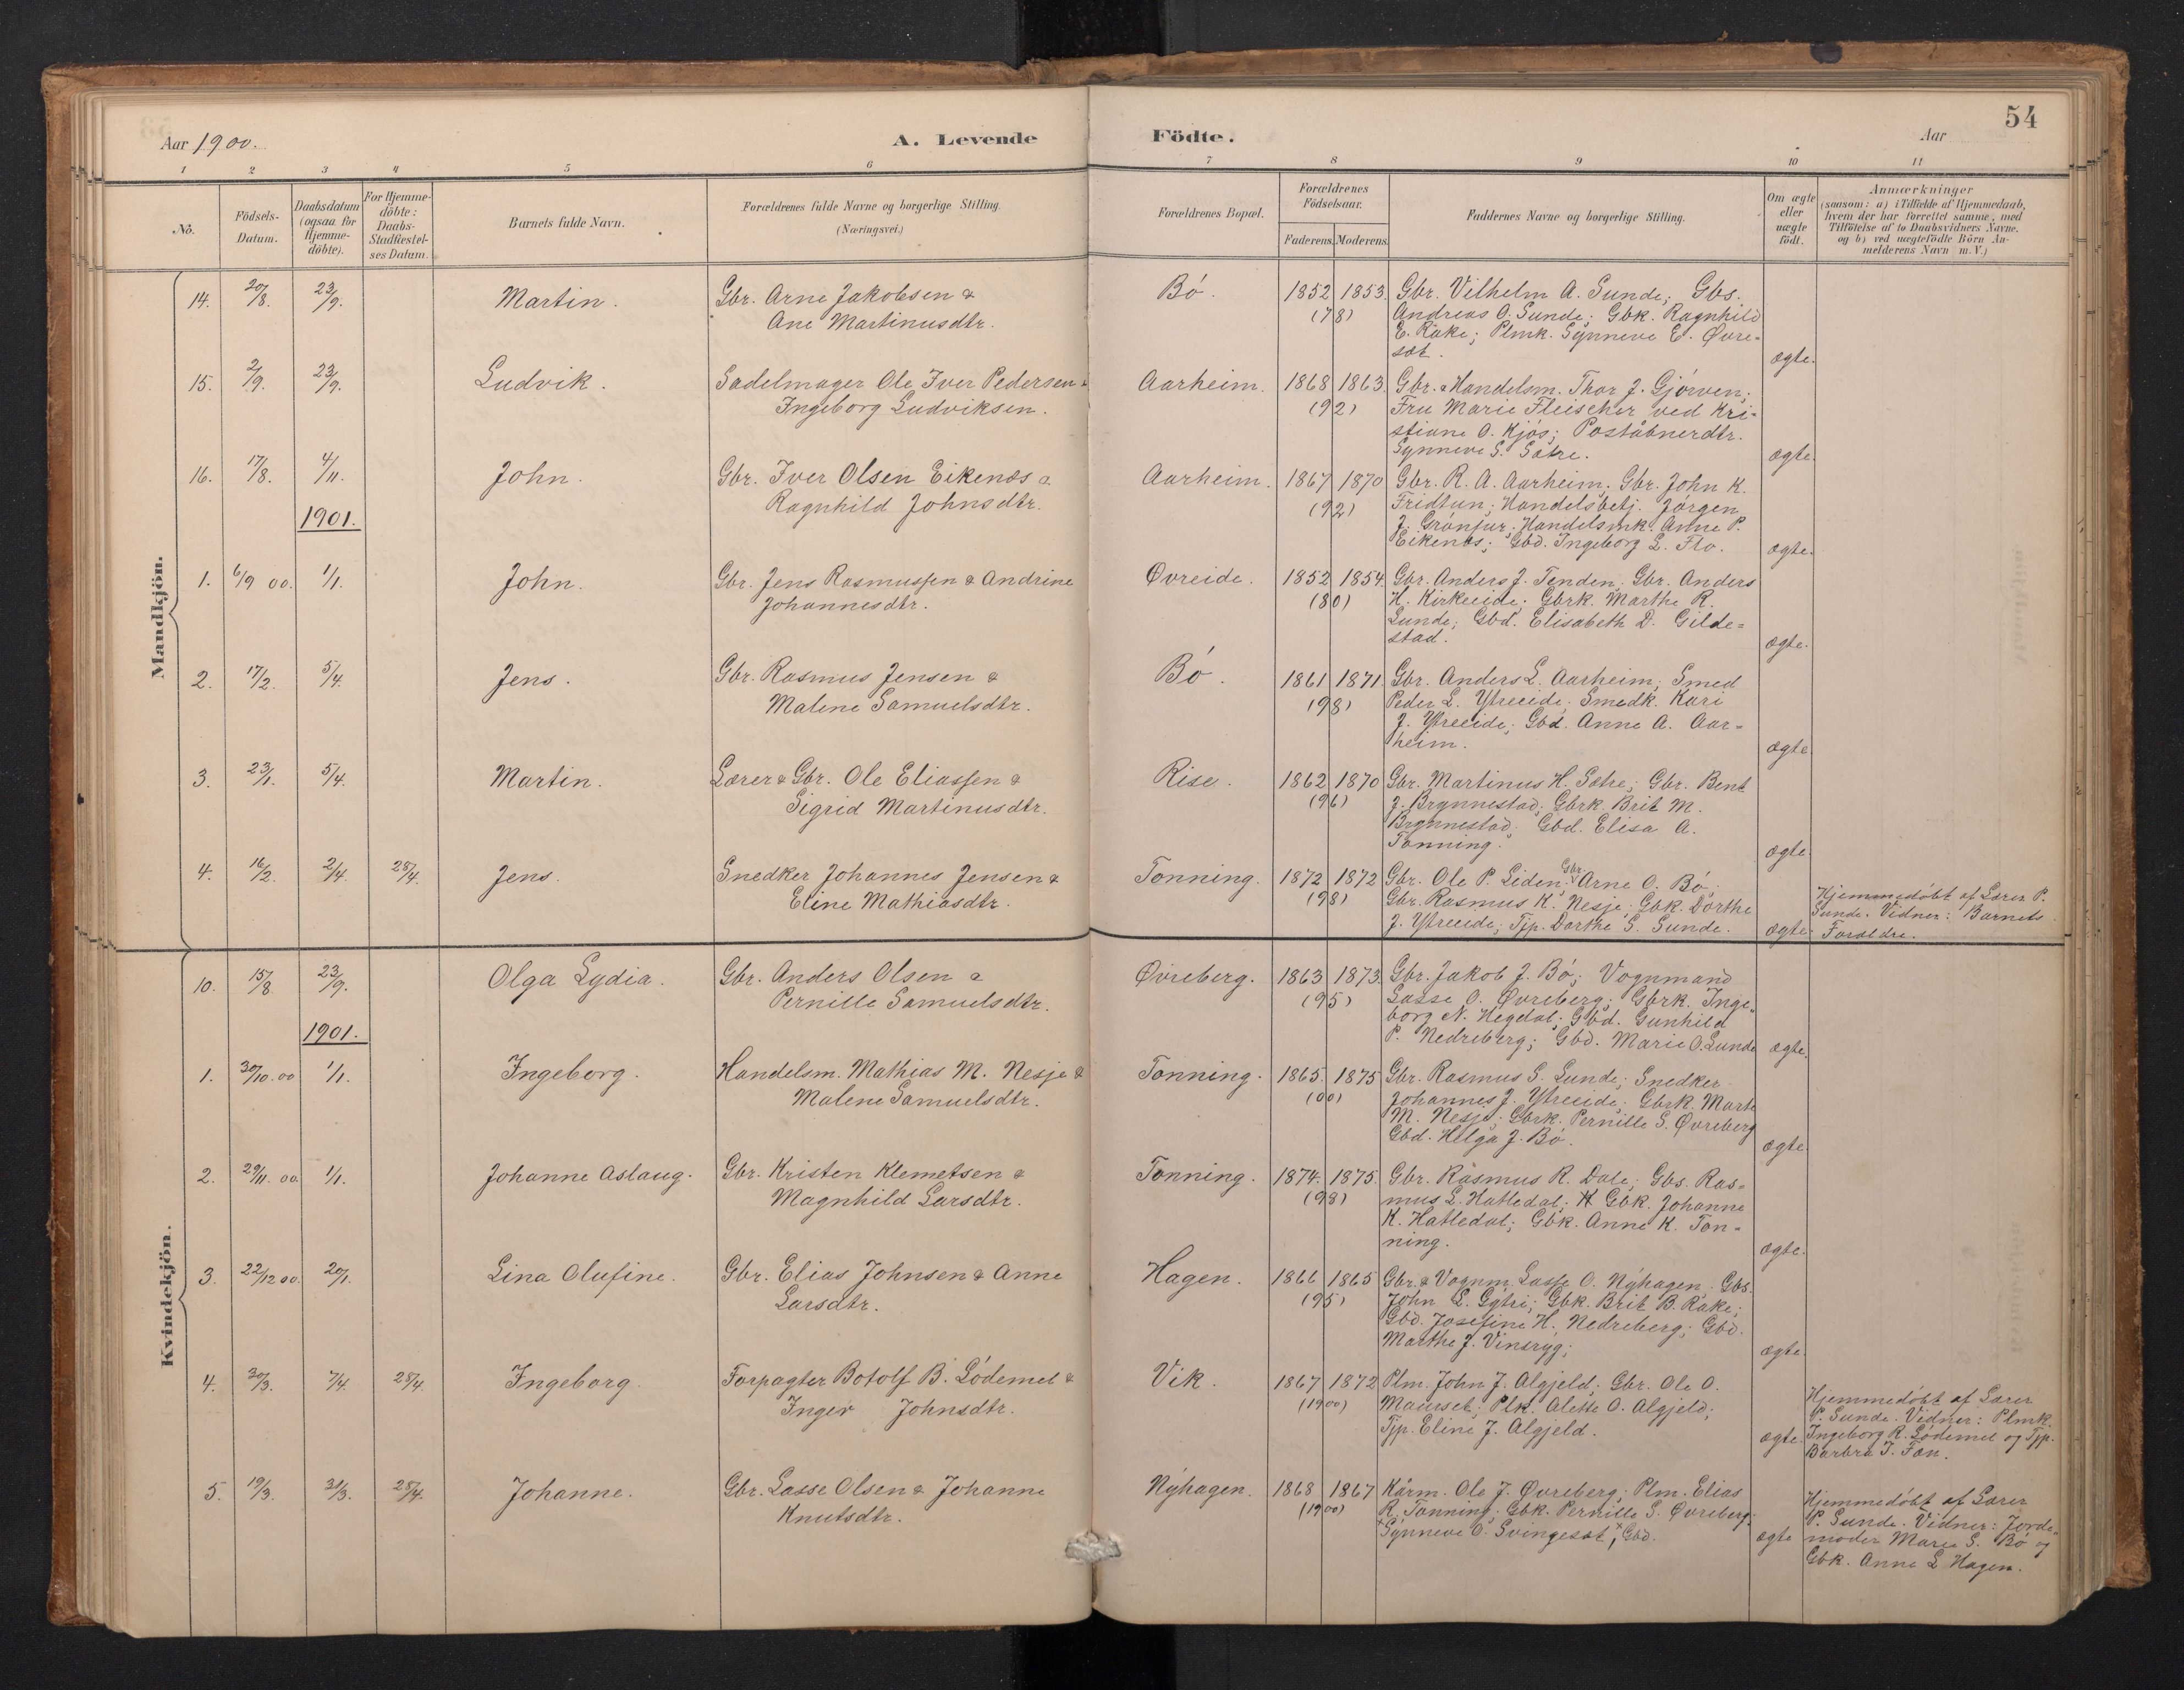 54
Aar 1900.
A. Levende Födte.
Aar
1 2 3 4 5 6 7 8 9 10 11
No.
Födsels-
Datum.
Daabsdatum
(ogsaa for
Hjemme-
döbte).
For Hjemme-
döbte:
Daabs-
Stadfæstel-
ses Datum.
Barnets fulde Navn.
Forældrenes fulde Navne og borgerlige Stilling.
(Næringsvei.)
Forældrenes Bopæl.
Forældrenes
Födselsaar.
Faderens. Moderens.
Faddernes Navne og borgerlige Stilling.
Om ægte
eller
uægte
födt.
Anmærkninger
(saasom: a) i Tilfælde af Hjemmedaab,
hvem der har forrettet samme, med
Tilföielse af to Daabsvidners Navne.
og b) ved uægtefödte Börn An-
melderens Navn m. V.)
Mandkjön.
14. 20/8. 23/9. Martin. Gbr. Arne Jakobsen &
Ane Martinusdtr.
Bó. 1852 1853.
(78)
Gbr. Vilhelm A. Sunde; Gbs.
Andreas O. Sunde; Gbk. Ragnhild
E. Råke; Plmk. Synneve E. Øvre-
sæt.
ægte.
15. 2/9. 23/9. Ludvik. Sadelmager Ole Iver Pedersen &
Ingeborg Ludviksen.
Aarheim. 1868 1863.
(92)
Gbr. & Handelsm. Thor J. Gjörven;
Fru Marie Fleischer ved Kri-
stiane O. Kjós; Poståbnerdtr.
Synneve S. Sætre.
ægte.
16. 17/8. 4/11. John. Gbr. Iver Olsen Eikenæs &
Ragnhild Johnsdtr.
Aarheim. 1867 1870
(92)
Gbr. R. A. Aarheim; Gbr. John K.
Fridtun; Handelsbetj. Jörgen
J. Grönfur; Handelsmk. Anne P.
Eikenæs; Gbd. Ingeborg L. Flo.
ægte.
1901.
1. 6/9 00. 1/1. John. Gbr. Jens Rasmussen & Andrine
Johannesdtr.
Øvreide. 1852 1854.
(80)
Gbr. Anders J. Tenden; Gbr. Anders
H. Kirkeeide; Gbrk. Marthe R.
Sunde; Gbd. Elisabeth D. Gilde=
stad.
ægte.
2. 17/2. 5/4. Jens. Gbr. Rasmus Jensen &
Malene Samuelsdtr.
Bó. 1861 1871.
(98)
Gbr. Anders L. Aarheim; Smed
Peder L. Ytreeide; Smedk. Kari
J. Ytreeide; Gbd. Anne A. Aar=
heim.
ægte
3. 23/1. 5/4. Martin. Lærer & Gbr. Ole Eliassen &
Sigrid Martinusdtr.
Rise. 1862 1870
(96)
Gbr. Martinus H. Sætre; Gbr. Bent
J. Brynnestad; Gbrk. Brit M.
Brynnestad; Gbd. Elisa A.
Tonning.
ægte
4. 16/2. 2/4. 28/4. Jens. Snedker Johannes Jensen &
Eline Mathiasdtr.
Tonning. 1872 1872
(98)
Gbr. Ole P. Leiden; Gbr. Arne O. Bó;
Gbr. Rasmus K. Nesje; Gbk. Dorthe
J. Ytreeide; Tjp. Dorthe S. Sunde.
ægte.
Hjemmedöbt af Lærer P.
Sunde. Vidner: Barnets
Forældre.
Kvindekjön.
10. 15/8. 23/9. Olga Lydia. Gbr. Anders Olsen &
Pernille Samuelsdtr.
Øvreberg. 1863 1873.
(95)
Gbr. Jakob J. Bó; Vognmand
Lasse O. Øvreberg; Gbrk. Inge-
borg N. Hegdal; Gbd. Gunhild
P. Nedreberg; Gbd. Marie O. Sunde
ægte.
1901.
1. 30/10.00 1/1. Ingeborg. Handelsm. Mathias M. Nesje &
Malene Samuelsdtr.
Tonning. 1865. 1875
(00)
Gbr. Rasmus S. Sunde; Snedker
Johannes J. Ytreeide; Gbrk. Marte
M. Nesje; Gbrk. Pernille S. Øvreberg
Gbd. Helga J. Bó.
ægte.
2. 29/11. 00. 1/1. Johanne Aslaug. Gbr. Kristen Klemetsen &
Magnhild Larsdtr.
Tonning. 1874. 1875.
(98)
Gbr. Rasmus R. Dale; Gbs. Ras=
mus L. Hatledal; Gbk. Johanne
K. Hatledal; Gbk. Anne K. Ton=
ning.
ægte.
3. 22/12 00. 20/1. Lina Olufine. Gbr. Elias Johnsen & Anne
Larsdtr.
Hagen. 1866 1865
(95)
Gbr. & Vognm. Lasse O. Nyhagen; Gbs.
John L. Gytri; Gbk. Brit B. Råke;
Gbd. Josefine H. Nedreberg; Gbd.
Marthe J. Vinsryg;
ægte.
4. 30/3. 7/4. 28/4. Ingeborg. Forpagter Botolf B. Lödemel &
Inger Johnsdtr.
Vik. 1867 1872
(1900)
Plm. John J. Algjeld; Gbr. Ole O.
Maurset; Plk. Alette O. Algjeld;
Tjp. Eline J. Algjeld.
ægte.
Hjemmedöbt af Lærer
P. Sunde. Vidner: Plmk.
Ingeborg R. Lödemel og Tjp.
Barbra I. Fæn.
5. 19/3. 31/3. 28/4. Johanne. Gbr. Lasse Olsen & Johanne
Knutsdtr.
Nyhagen. 1868 1867
(1900)
Kårm. Ole J. Øvreberg; Plm. Elias
R. Tonning; Gbk. Pernille S. Øvreberg;
Synneve O. Svingeset, Gbd.
ægte
Hjemmedöbt af Lærer
P. Sunde. Vidner: Jorde-
moder Marie S. Bó og
Gbk. Anne L. Hagen.